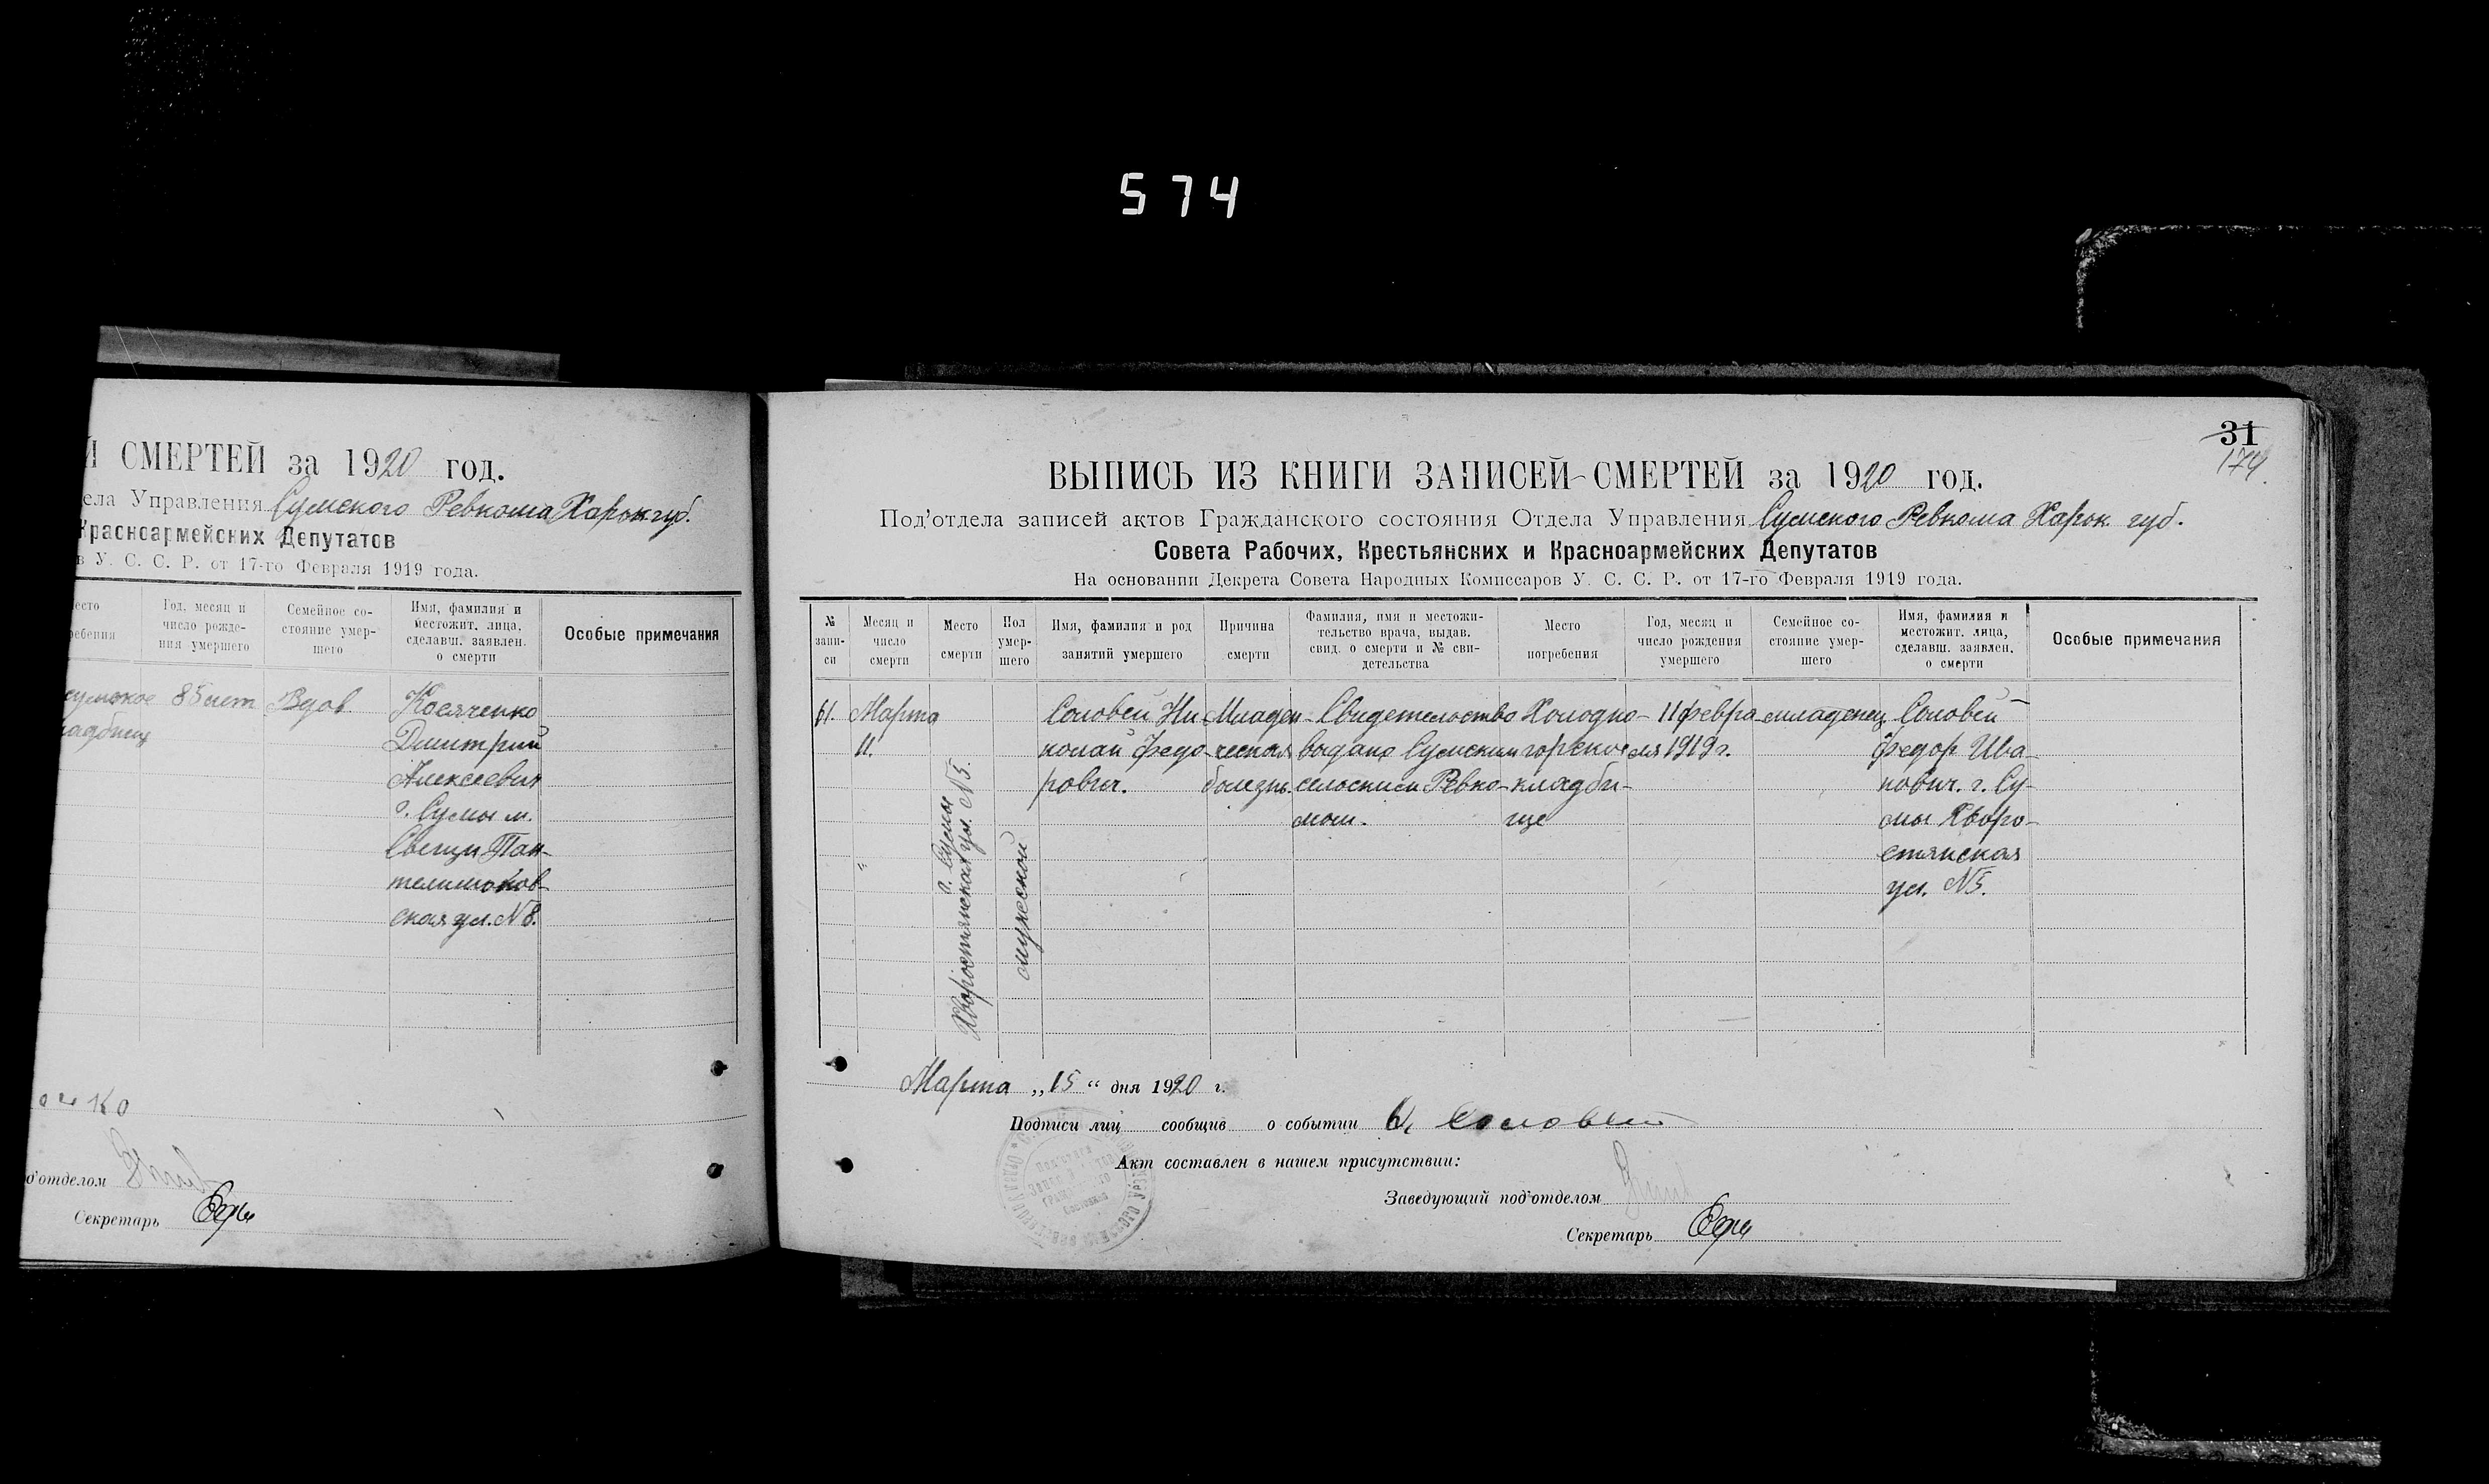 574
Й СМЕРТЕЙ за 1920 год.
ела Управления Сумского Ревкома Харьк губ.
Красноармейских Депутатов
в У. С. С. Р. от 17-го Февраля 1919 года.
есто
ребения
Год, месяц и
число рожде-
ния умершего
Семейное со-
стояние умер-
шего
Имя, фамилия и
местожит. лица,
сделавш. заявлен.
о смерти
Особые примечания
сумское 85 лет Вдов Косяченко
Дмитрий
Алексеевич
г. Сумы м.
Свещи Пан-
телимонов-
ская ул. № 8.
о ч к о
од'отделом
Секретарь
31
174.
ВЫПИСЬ ИЗ КНИГИ ЗАПИСЕЙ СМЕРТЕЙ за 1920 год.
Под'отдела записей актов Гражданского состояния Отдела Управления Сумского Ревкома Харьк. губ.
Совета Рабочих, Крестьянских и Красноармейских Депутатов
На основании Декрета Совета Народных Комиссаров У. С. С. Р. от 17-го Февраля 1919 года.
№
запи-
си
Месяц и
число
смерти
Место
смерти
Пол
умер-
шего
Имя, фамилия и род
занятий умершего
Причина
смерти
Фамилия, имя и местожи-
тельство врача, выдав.
свид. о смерти и № сви-
детельства
Место
погребения
Год, месяц и
число рождения
умершего
Семейное со-
стояние умер-
шего
Имя, фамилия и
местожит. лица,
сделавш. заявлен.
о смерти
Особые примечания
61.
Марта
11.
г. Сумы
Хворостянская ул. № 5.
мужеской
Соловей Ни
колай Федо-
рович.
Младен-
ческая
болезнь.
Свидетельство
выдано Сумским
сельским Ревко-
мом.
Холодно-
горское
кладби-
ще
11 февра
ля 1919 г.
младенец
Соловей
Федор Ива-
нович. г. Су-
мы Хворо-
стянская
ул. № 5.
Марта „15“ дня 1920 г.
Подписи лиц сообщив о событии Соловей
Акт составлен в нашем присутствии:
Заведующий под'отделом
Секретарь